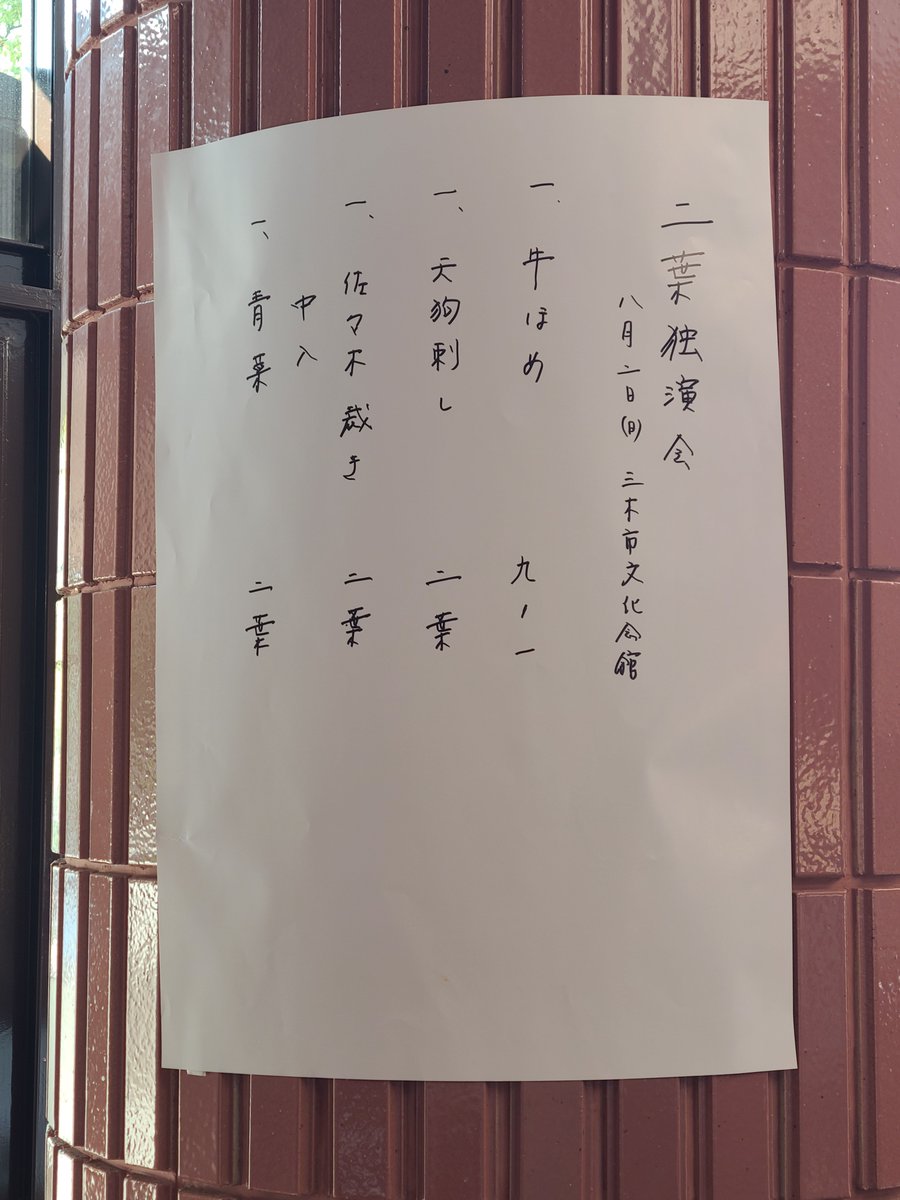 二葉独演会
八月二日(日) 三木市文化会館
一、牛ほめ 九ノ一
一、天狗刺し 二葉
一、佐々木裁き 二葉
中入
一、青菜 二葉